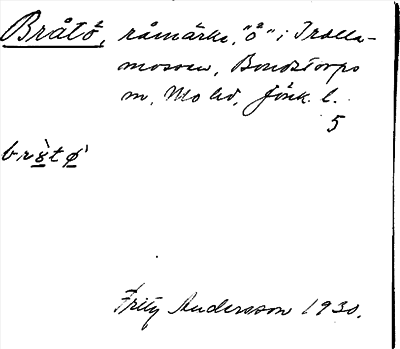 Bråtö, råmärke, "ö" i Trolla-
mossen, Bondstorps
sn, Mo hd, Jönk. l.
5
brò̤tø̤̀
Fritz Andersson 1930.